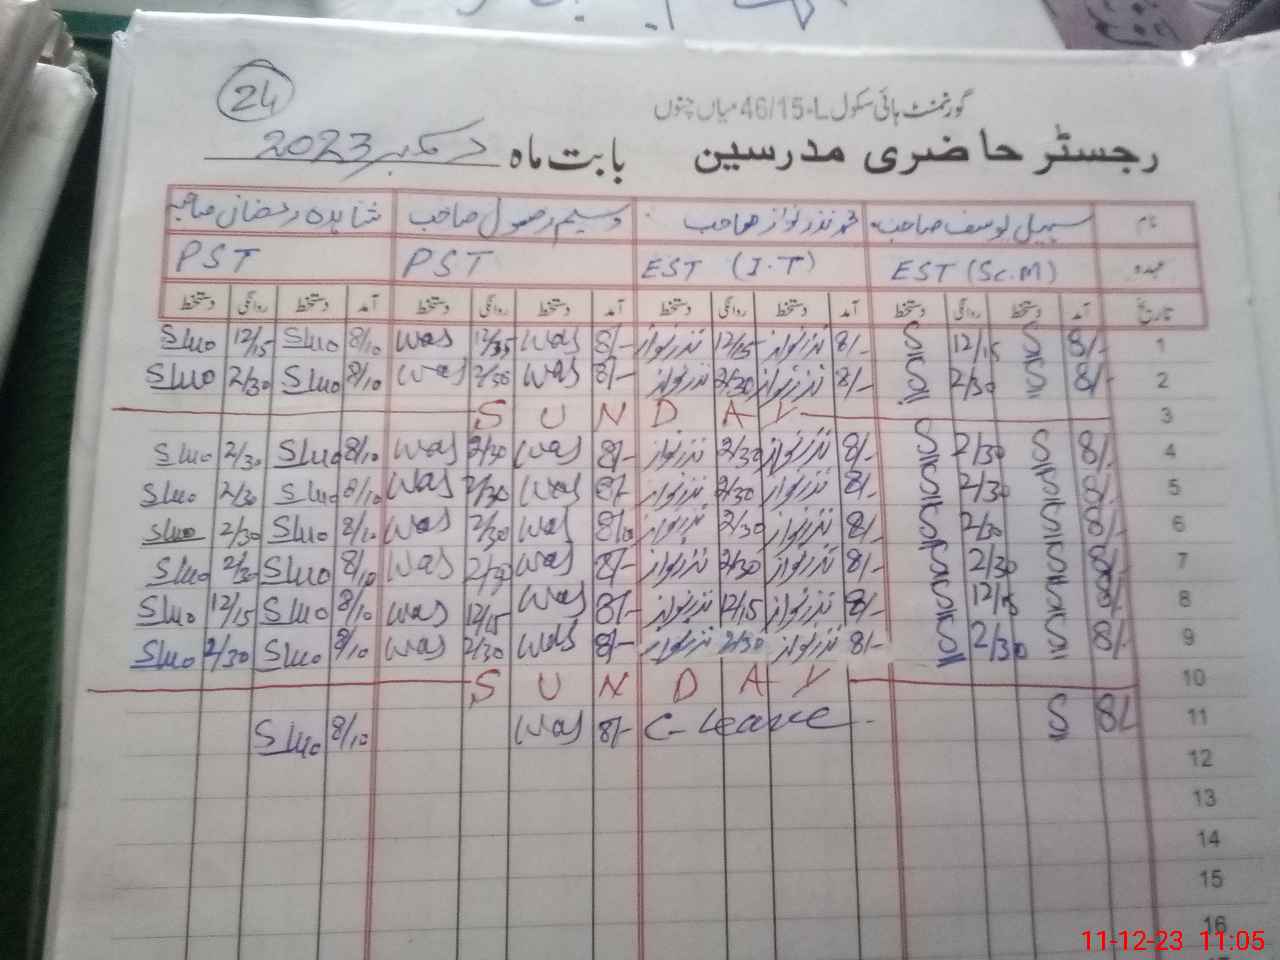 24
گورنمنٹ ہائی سکول 46/15-L میاں چنوں
رجسٹر حاضری مدرسین بابت ماہ دسمبر 2023
نام سہیل یوسف صاحب محمد نذر نواز صاحب وسیم رسول صاحب شاہدہ رمضان صاحبہ
عہدہ EST (Sc.M) EST (I.T) PST PST
تاریخ آمد دستخط روانگی دستخط آمد دستخط روانگی دستخط آمد دستخط روانگی دستخط آمد دستخط روانگی دستخط
1 8/- 12/15 8/- نذر نواز 12/15 نذر نواز 8/- Was Was 8/10 Slmo 12/15 Slmo
2 8/- 2/30 8/- نذر نواز 2/30 نذر نواز 8/- Was 2/30 Was 8/10 Slmo 2/30 Slmo
3 SUNDAY
4 8/- 2/30 8/- نذر نواز 2/30 نذر نواز 8/- Was 2/30 Was 8/10 Slmo 2/30 Slmo
5 8/- 2/30 8/- نذر نواز 2/30 نذر نواز 8/- Was 2/30 Was 8/10 Slmo 2/30 Slmo
6 8/- 2/30 8/- نذر نواز 2/30 نذر نواز Was 2/30 Was 8/10 Slmo 2/30 Slmo
7 8/- 2/30 8/- نذر نواز 2/30 نذر نواز 8/- Was 2/30 Was 8/10 Slmo 2/30 Slmo
8 8/- 12/15 8/- نذر نواز 12/15 نذر نواز 8/- Was 12/15 Was 8/10 Slmo 12/15 Slmo
9 8/- 2/30 8/- نذر نواز 2/30 نذر نواز 8/- Was 2/30 Was 8/10 Slmo 2/30 Slmo
10 SUNDAY
11 8/- C-Leave 8/- Was 8/10 Slmo
12
13
14
15
16
11-12-23 11:05